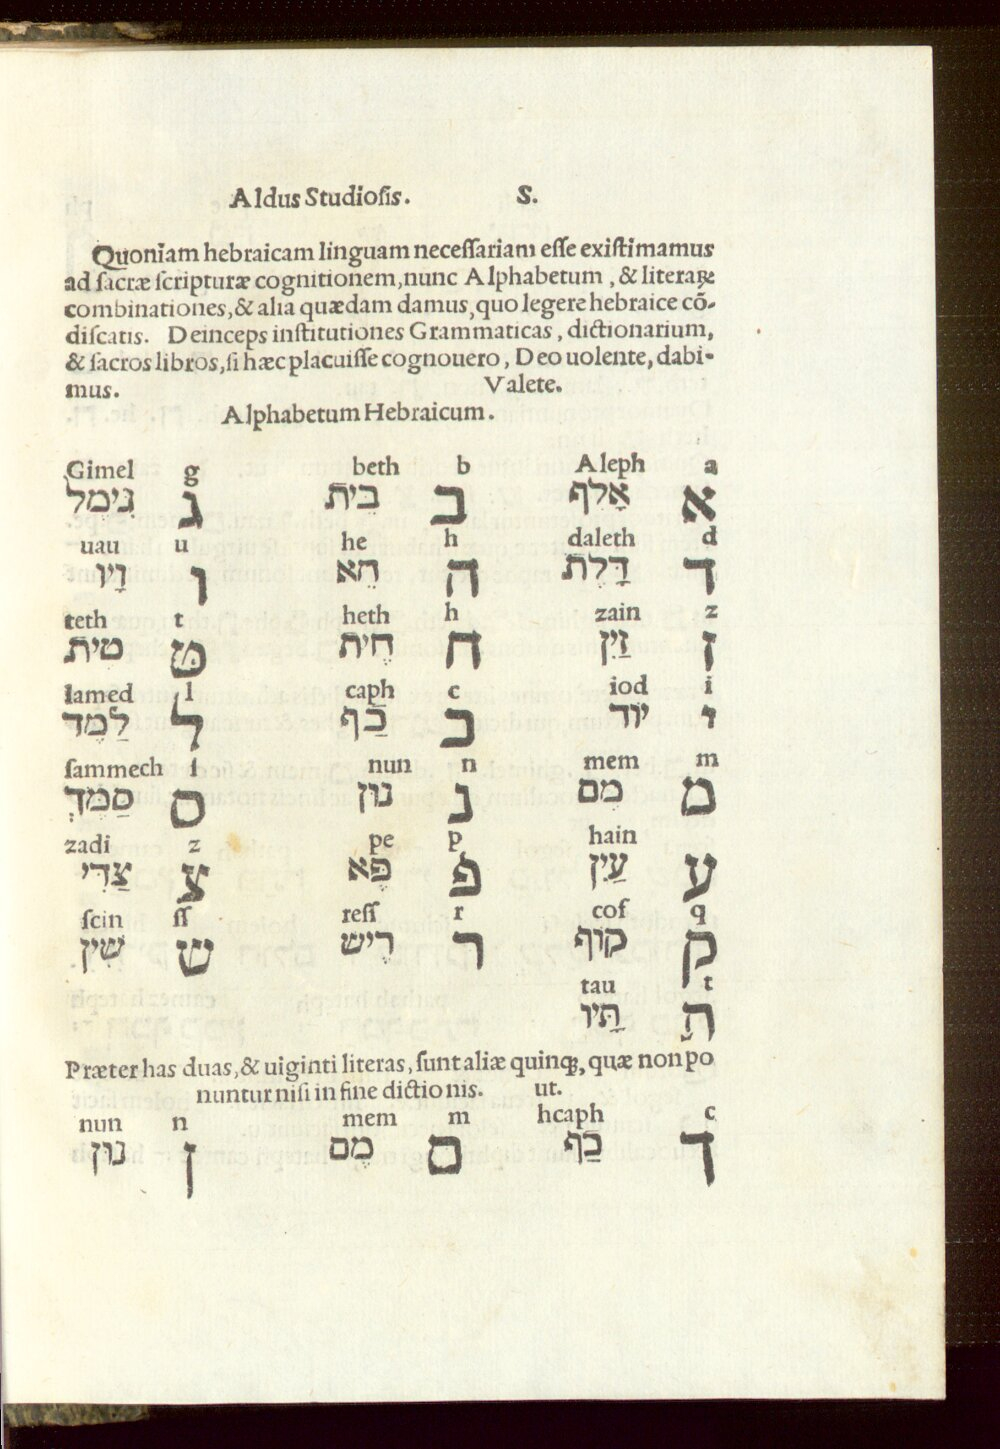 Aldus Studiosis. S.
Quoniam hebraicam linguam necessariam esse existimamus
ad sacræ scripturæ cognitionem, nunc Alphabetum, & literaꝝ
combinationes, & alia quædam damus, quo legere hebraice cõ-
discatis. Deinceps institutiones Grammaticas, dictionarium,
& sacros libros, si hæc placuisse cognouero, Deo uolente, dabi-
mus. Valete.
Alphabetum Hebraicum.
Gimel g beth b Aleph a
גִימֶל ג בֵּית ב אָלֶף א
uau u he h daleth d
וָיו ו הֵא ה דָּלֶת ד
teth t heth h zain z
טֵית ט חֵית ח זַיִן ז
lamed l caph c iod i
לַמֶד ל כַּף כ יוֹד י
sammech s nun n mem m
סַמֶּךְ ס נוּן נ מֵם מ
zadi z pe p hain
צַדִי צ פֵּא פ עַיִן ע
scin ss ress r cof q
שִׁין ש רֵיש ר קוֹף ק
tau t
תָּיו ת
Præter has duas, & uiginti literas, sunt aliæ quinqꝫ, quæ non po
nuntur nisi in fine dictionis. ut.
nun n mem m hcaph c
נוּן ן מֵם ם כַּף ך